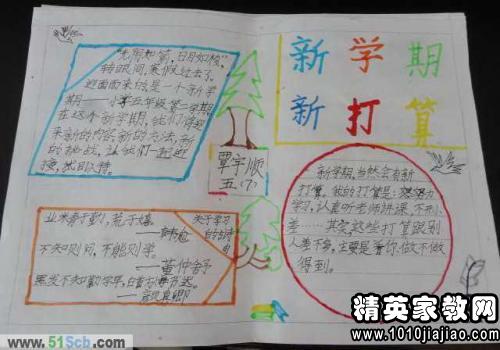 新学期
新打算
“光阴如箭，日月如梭”，
转眼间，寒假过去了，
迎面而来的是一个新学
期——小学五年级第二学期
在这个新学期，我们将迎
来新的内容新的方法，新
的挑战，让我们一起迎
接，拭目以待。
覃宇顺
五(7)
新学期，当然会有新
打算，我的打算是：努力
学习，认真听老师讲课，不开小
差……其实这些打算跟别
人差不多，主要是看你做不做
得到。
关于学习
的名言
业精于勤，荒于嬉
——韩愈
不知则问，不能则学。
——董仲舒
黑发不知勤学早，白首方悔读书迟
——颜真卿
www.51Scb.com
精英家教网
www.1010jiajiao.com